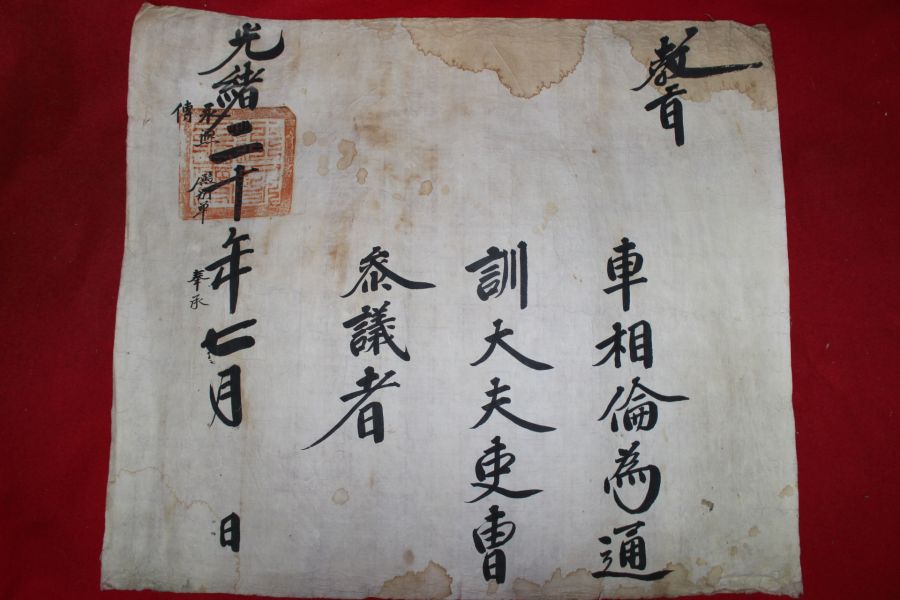 教旨
車相倫為通
訓大夫吏曺
叅議者
光緒二十年七月 日
傳
奉承